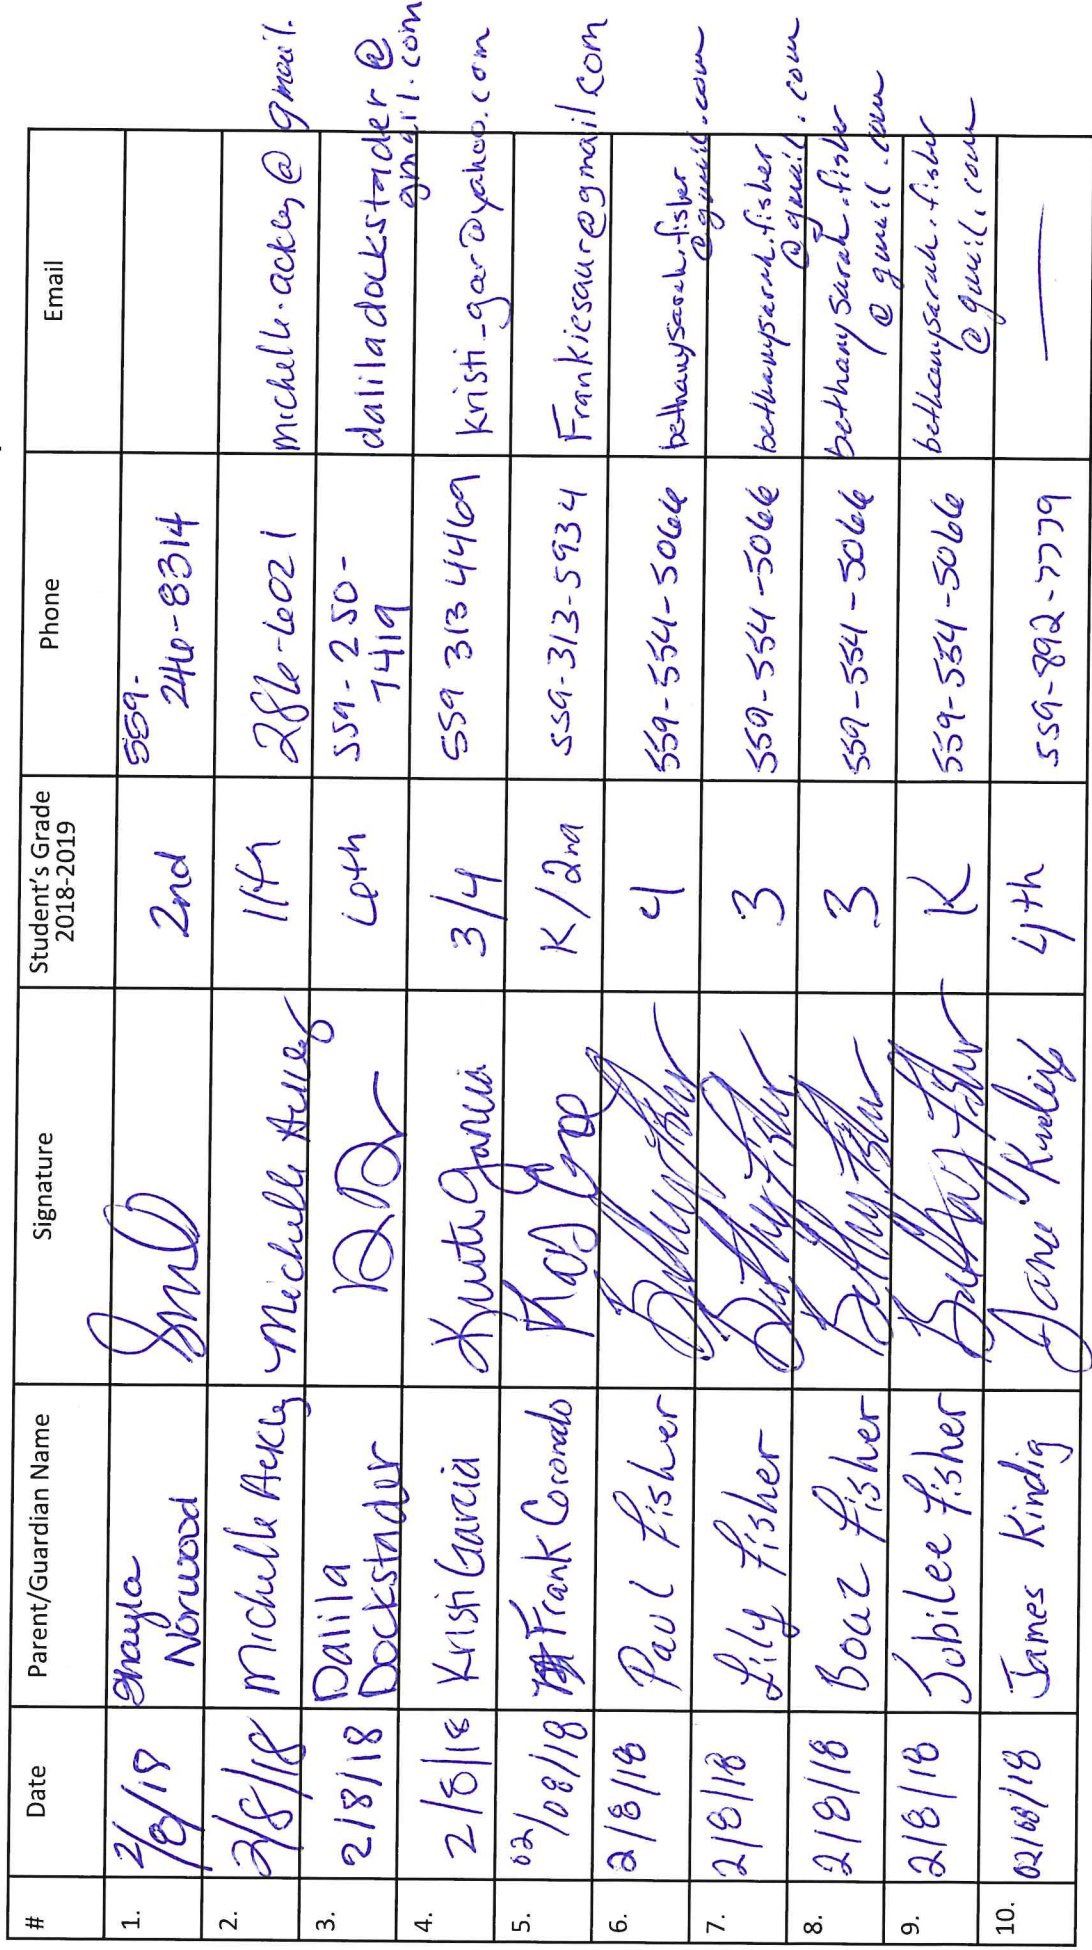 # Date Parent/Guardian Name Signature Student's Grade 2018-2019 Phone Email
1. 2/8/18 Shayla Norwood 2nd 559-246-8314
2. 2/8/18 Michelle Ackley Michelle Ackley 11th 286-6021 michelle.ackley@gmail.
3. 2/8/18 Dalila Dockstader 6th 559-250-7419 daliladockstader@gmail.com
4. 2/8/18 Kristi Garcia Kristi Garcia 3/4 559 313 4469 kristi_gar@yahoo.com
5. 02/08/18 Frank Coronado K/2nd 559-313-5934 Frankiesaur@gmail.com
6. 2/8/18 Paul Fisher Bethany Fisher 4 559-554-5066 bethanysarah.fisher@gmail.com
7. 2/8/18 Lily Fisher Bethany Fisher 3 559-554-5066 bethanysarah.fisher@gmail.com
8. 2/8/18 Boaz Fisher Bethany Fisher 3 559-554-5066 bethanysarah.fisher@gmail.com
9. 2/8/18 Jubilee Fisher Bethany Fisher K 559-554-5066 bethanysarah.fisher@gmail.com
10. 02/08/18 James Kindig 4th 559-892-7779 —